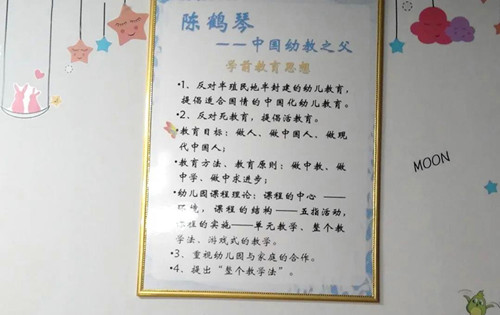 陈鹤琴
——中国幼教之父
学前教育思想
•1、反对半殖民地半封建的幼儿教育，
提倡适合国情的中国化幼儿教育。
•2、反对死教育，提倡活教育。
•教育目标：做人、做中国人、做现
代中国人；
•教育方法、教育原则：做中教、做
中学、做中求进步；
•幼儿园课程理论：课程的中心——
环境，课程的结构——五指活动，
课程的实施——单元教学、整个教
学法、游戏式的教学。
•3、重视幼儿园与家庭的合作。
•4、提出“整个教学法”。
MOON